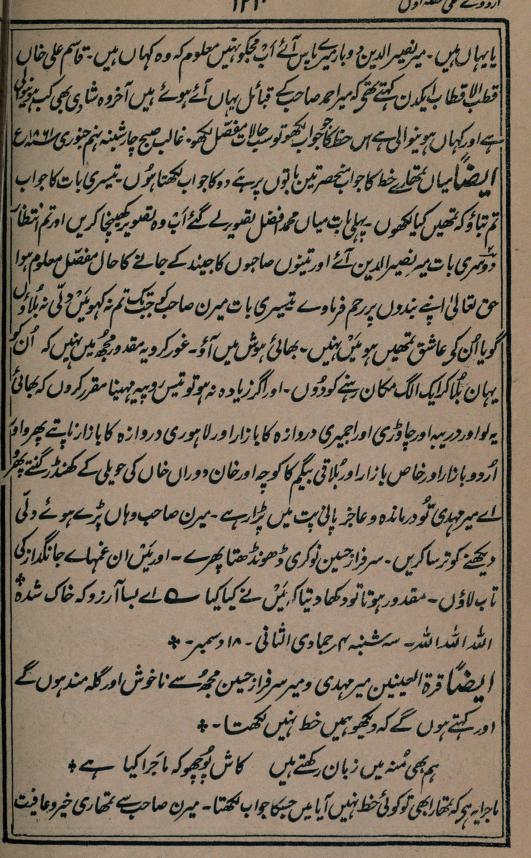 اردوے معلی حصہ اول
یا یہاں ہیں۔ میر نصیر الدین دوبار میرے پاس آئے اب مجھکو نہیں معلوم کہ وہ کہاں ہیں۔ قاسم علی خاں
قطب الاقطاب ایکدن کہتے تھے کہ میر احمد صاحب کے قبائل یہاں آئے ہوئے ہیں آخر وہ شادی بھی کب
ہے اور کہاں ہونیوالی ہے اس خط کا جو جواب لکھو تو سب حالات مفصل لکھو۔ غالب صبح چار شنبہ نہم جنوری
ایضاً میاں تمھارے خط کا جواب منحصر تین باتوں پر ہے دو کا جواب لکھتا ہوں۔ تیسری بات کا جواب
تم بتاؤ کہ تمھیں کیا لکھوں۔ پہلی بات میاں محمد افضل تصویر لے گئے اب وہ تصویر کھینچا کریں اور تم انتظار
دوسری بات میر نصیر الدین آئے اور تینوں صاحبوں کا جیند کے جانے کا حال مفصل معلوم ہوا
حق تعالیٰ اپنے بندوں پر رحم فرماوے تیسری بات میرن صاحب کو جبتک تم نہ کہو میں دلی نہ بلاؤں
گویا ان کے عاشق تمھیں ہو میں نہیں۔ بھائی ہوش میں آؤ۔ غور کرو یہ مقدور مجھ میں نہیں کہ اُن کو
یہاں بلا کر ایک الگ مکان رہنے کو دوں۔ اور اگر زیادہ نہ ہو تو تیس روپیہ مہینا مقرر کروں کہ بھائی
یہ لو اور دریبہ اور چاوڑی اور اجمیری دروازہ کا بازار اور لاہوری دروازہ کا بازار ناپتے پھرو اور
اُردو بازار اور خاص بازار اور بلاقی بیگم کا کوچہ اور خان دوراں خاں کی حویلی کے کھنڈر گنتے پھرو
اے میر مہدی تو درماندہ و عاجز پانی پت میں پڑا رہے۔ میرن صاحب وہاں پڑے ہوئے دلّی
دیکھنے کو ترسا کریں۔ سرفراز حسین نوکری ڈھونڈھتا پھرے۔ اور میں ان غمہاے جانگداز کی
تاب لاؤں۔ مقدور ہوتا تو دکھا دیتا کہ میں نے کیا کیا ؎ اے بسا آرزو کہ خاک شدہ
اللہ اللہ اللہ۔ سہ شنبہ ۴ جمادی الثانی۔ ۱۸ دسمبر۔
ایضاً قرۃ العینین میر مہدی و میر سرفراز حسین مجھ سے ناخوش اور گلہ مند ہوں گے
اور کہتے ہوں گے کہ دیکھو ہمیں خط نہیں لکھتا۔
ہم بھی منہ میں زبان رکھتے ہیں کاش پوچھو کہ ماجرا کیا ہے
ماجرا یہ ہے کہ تمھارا بھی تو کوئی خط نہیں آیا میں جسکا جواب لکھتا۔ میرن صاحب سے تمھاری خیر و عافیت